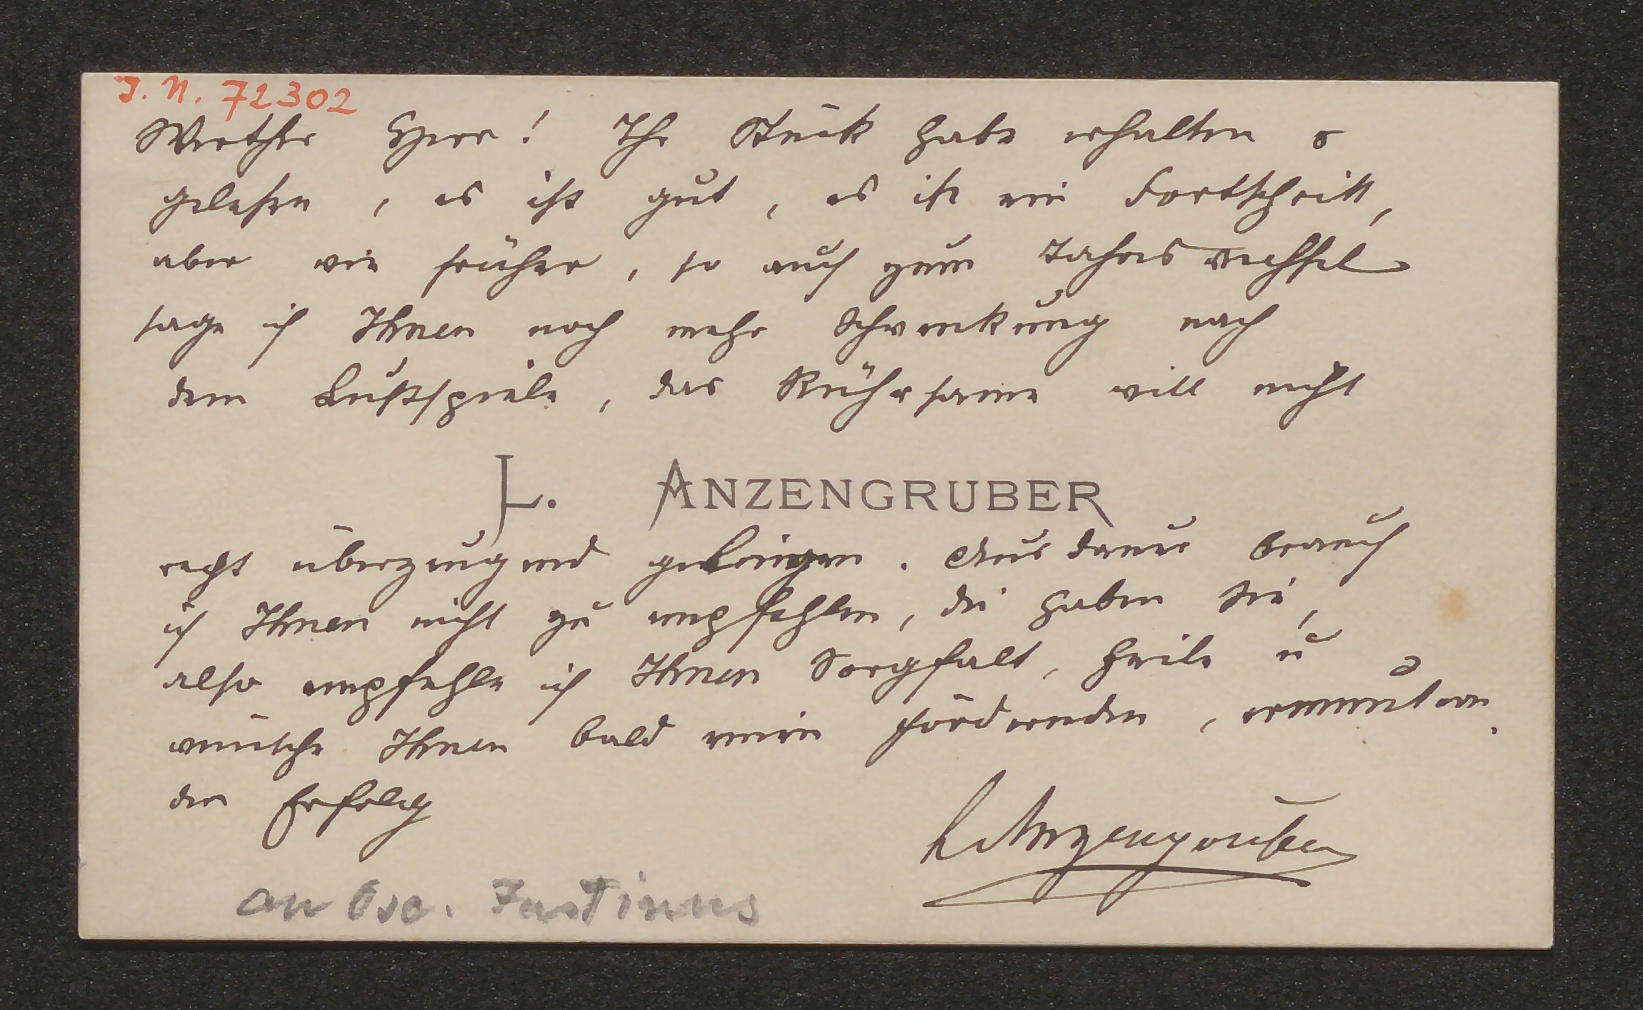 I. N. 72302
Werther Herr! Ihr Stück habe erhalten &
gelesen, es ist gut, es ist ein Fortschritt,
aber wie früher, so auch zum Jahreswechsel
sage ich Ihnen noch mehr Schwenkung nach
dem Lustspiele, das Rührsame will nicht
L. ANZENGRUBER
recht überzeugend gelingen. Ausdauer brauch
ich Ihnen nicht zu empfehlen, die haben Sie,
also empfehle ich Ihnen Sorgfalt, Feile u
wünsche Ihnen bald einen fördernden, ermuntern
den Erfolg
LAnzengruber
an Osc. Justinus